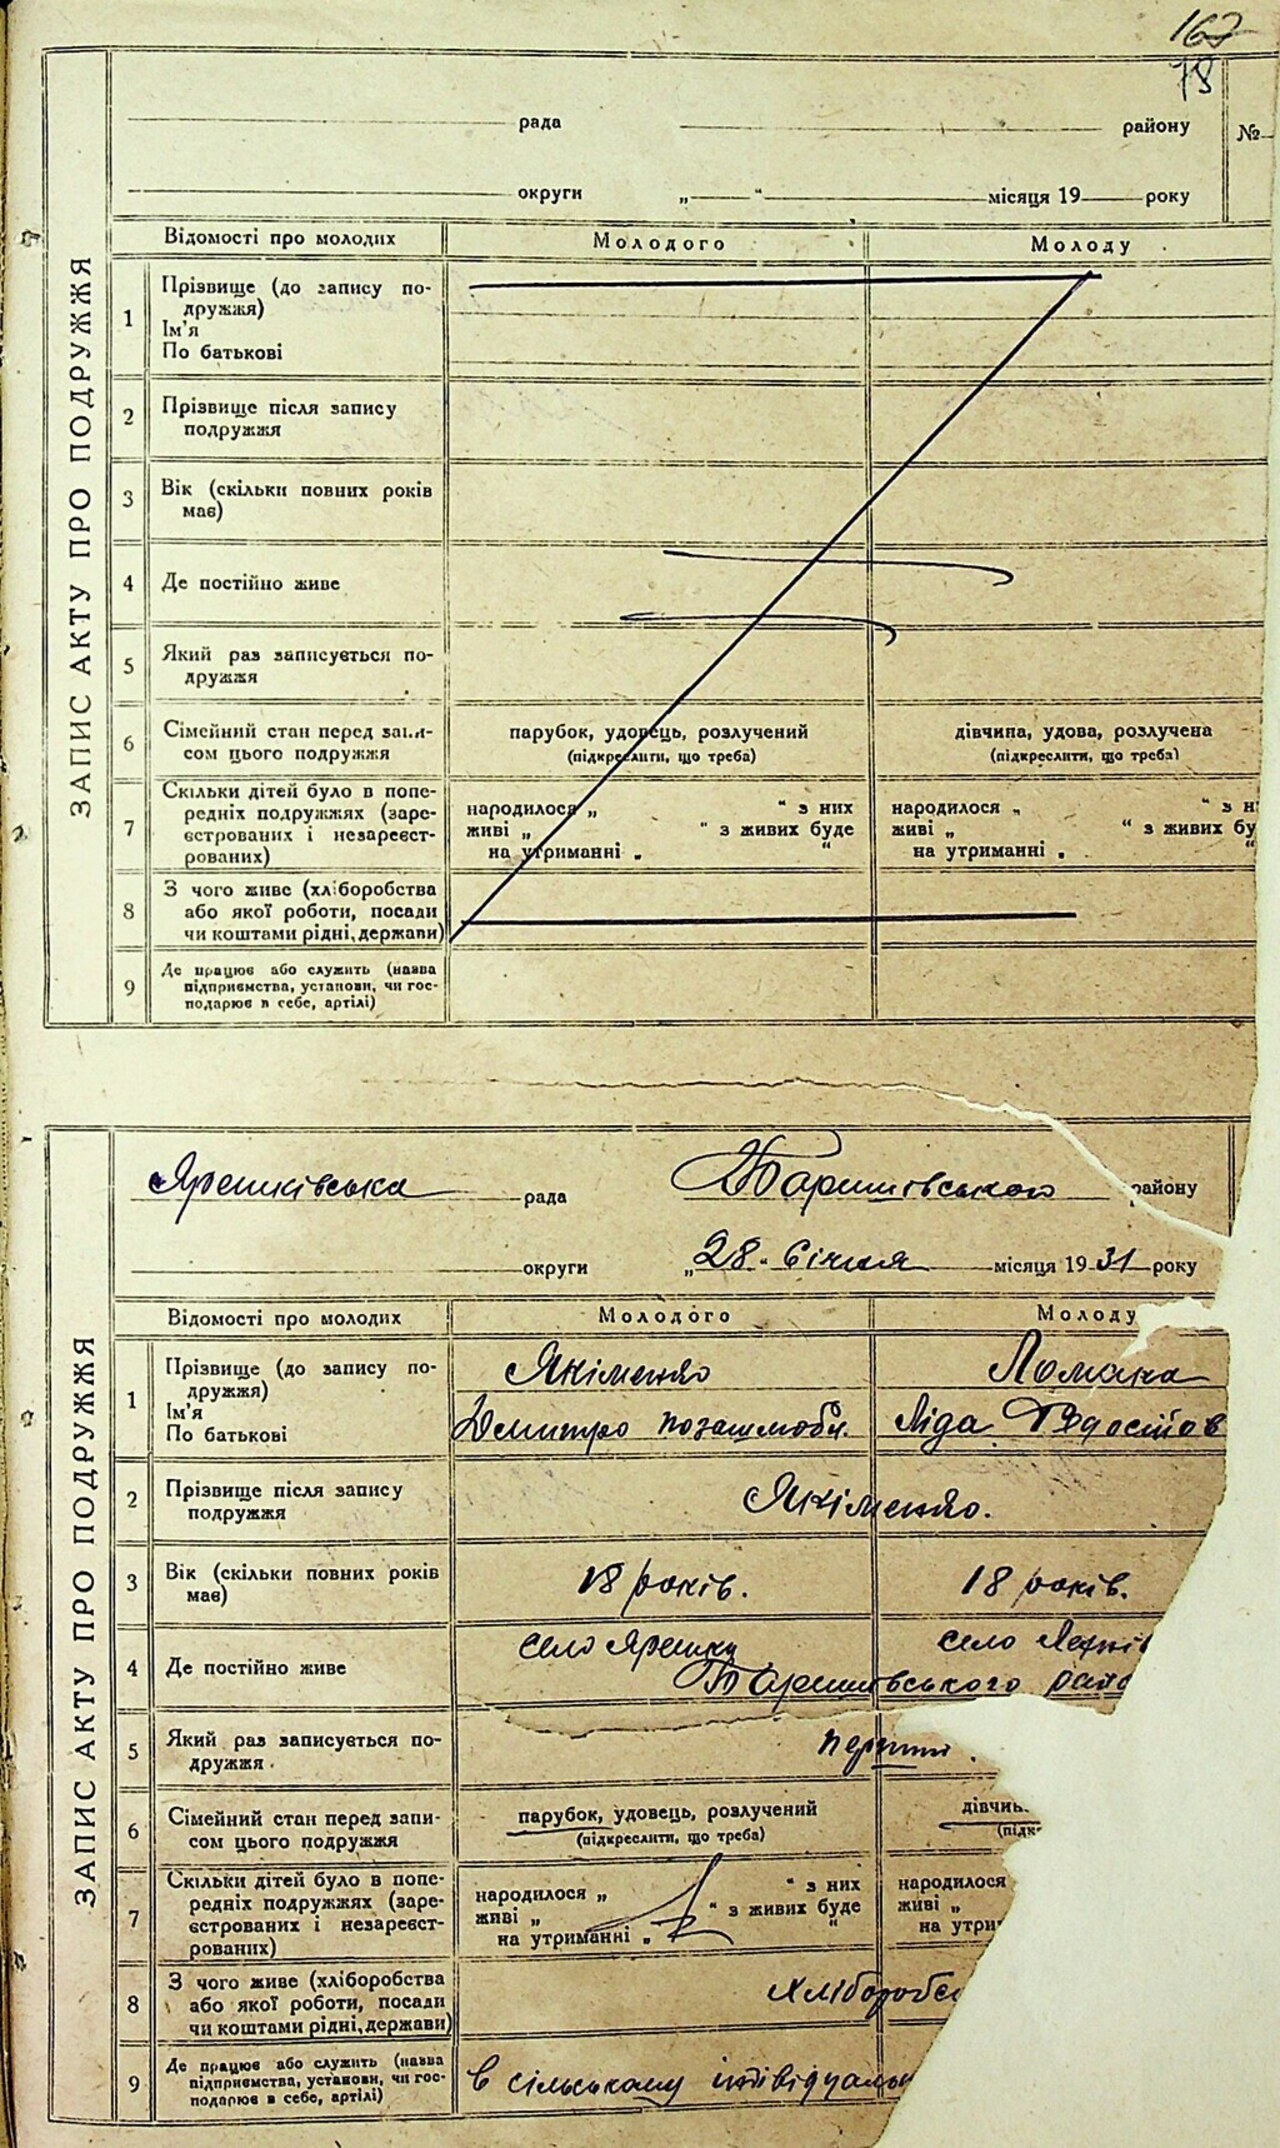 167
78
рада району №
округи „ “ місяця 19 року
ЗАПИС АКТУ ПРО ПОДРУЖЖЯ
Відомості про молодих Молодого Молоду
1 Прізвище (до запису по-
дружжя)
Ім'я
По батькові
2 Прізвище після запису
подружжя
3 Вік (скільки повних років
має)
4 Де постійно живе
5 Який раз записується по-
дружжя
6 Сімейний стан перед запи-
сом цього подружжя
парубок, удовець, розлучений дівчина, удова, розлучена
(підкреслити, що треба) (підкреслити, що треба)
7 Скільки дітей було в попе-
редніх подружжях (заре-
єстрованих і незареєст-
рованих)
народилося „ “ з них народилося „ “ з н
живі „ “ з живих буде живі „ “ з живих бу
на утриманні „ “ на утриманні „ “
8 З чого живе (хліборобства
або якої роботи, посади
чи коштами рідні, держави)
9 Де працює або служить (назва
підприємства, установи, чи гос-
подарює в себе, артілі)
Ярешківська рада Баришівського району
округи „28“ Січня місяця 1931 року
ЗАПИС АКТУ ПРО ПОДРУЖЖЯ
Відомості про молодих Молодого Молоду
1 Прізвище (до запису по-
дружжя)
Ім'я
По батькові
Якіменко Ломака
Дмитро позашлюбн. Ліда Федосіїв
2 Прізвище після запису
подружжя
Якіменко.
3 Вік (скільки повних років
має)
18 років. 18 років.
4 Де постійно живе
село Ярешки село
Баришівського рай
5 Який раз записується по-
дружжя
перший.
6 Сімейний стан перед запи-
сом цього подружжя
парубок, удовець, розлучений дівчин
(підкреслити, що треба) (підк
7 Скільки дітей було в попе-
редніх подружжях (заре-
єстрованих і незареєст-
рованих)
народилося „ “ з них народилося
живі „ “ з живих буде живі „
на утриманні „ “ на утри
8 З чого живе (хліборобства
або якої роботи, посади
чи коштами рідні, держави)
Хліборобс
9 Де працює або служить (назва
підприємства, установи, чи гос-
подарює в себе, артілі)
в сільському індівідуальн